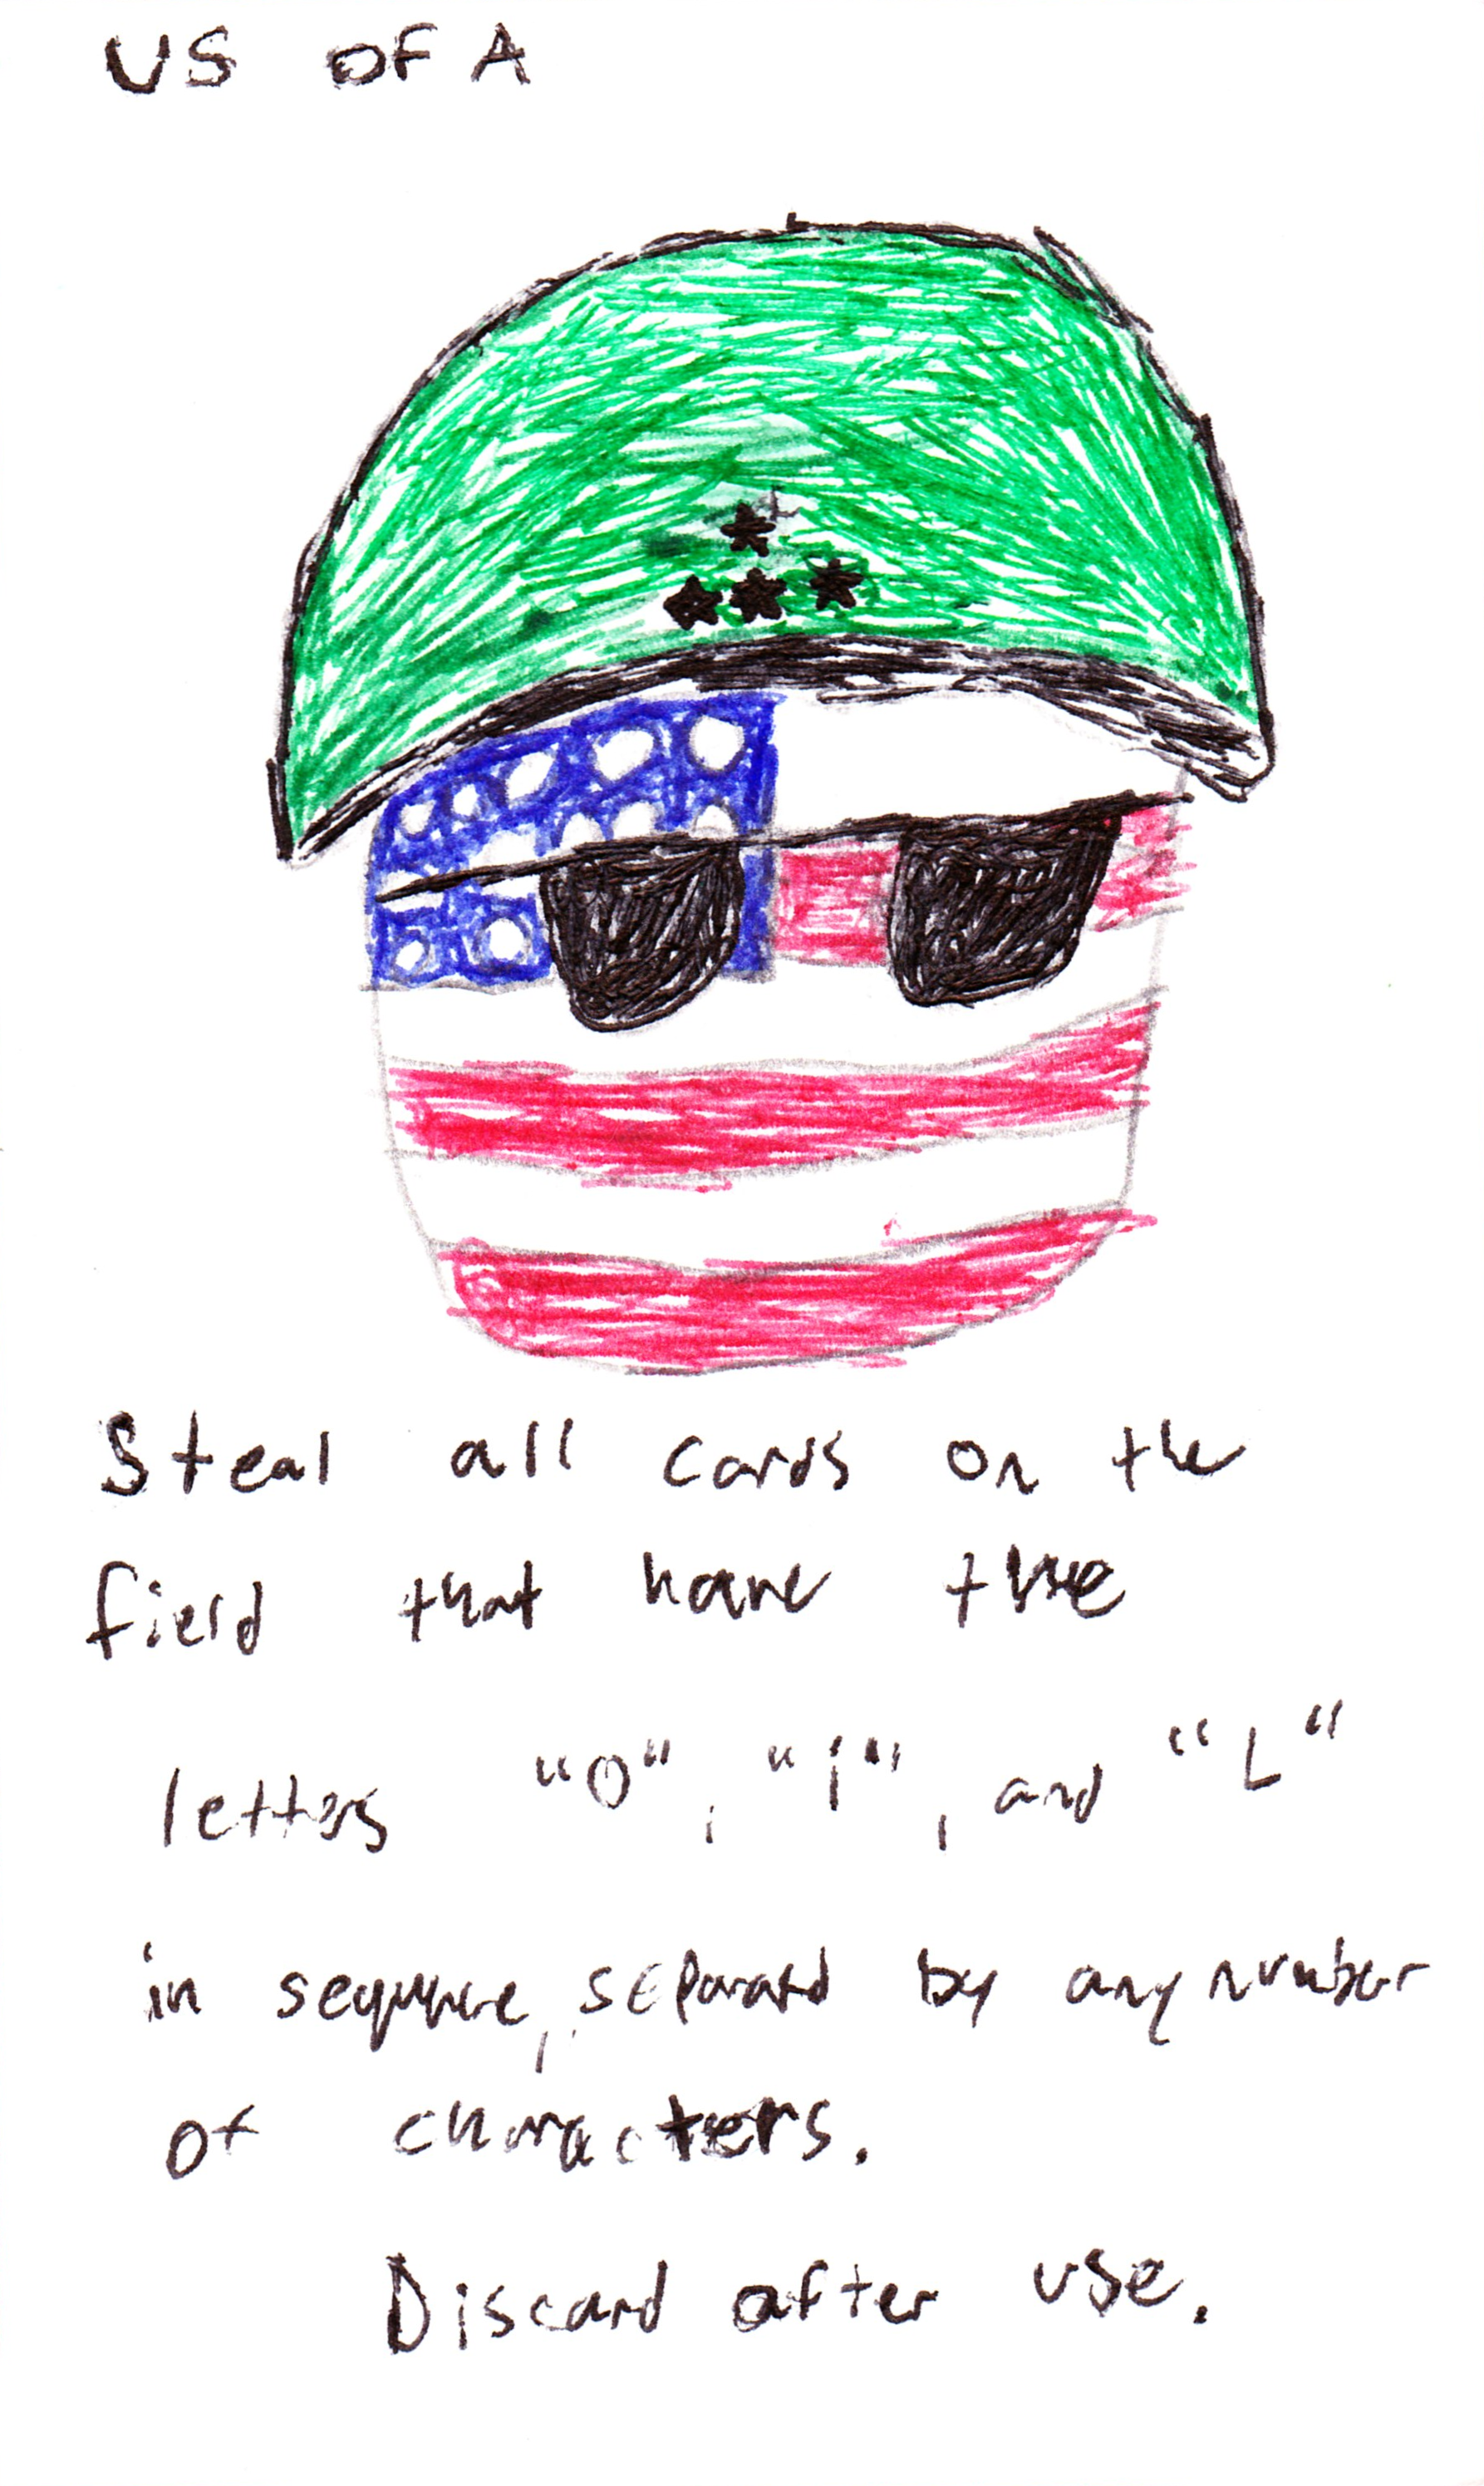 US OF A
Steal all cards on the
field that have the
letters "O", "i", and "L"
in sequence, separated by any number
of characters.
Discard after use.